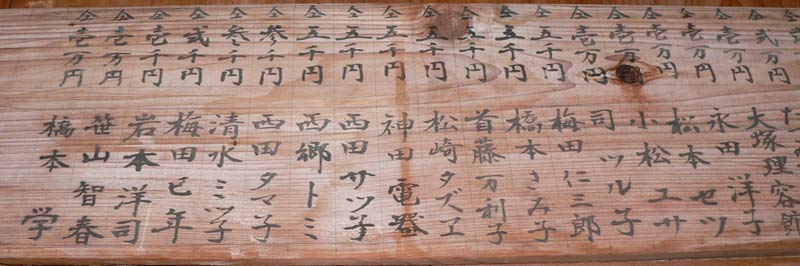 仝弐万円
仝壱万円
仝壱万円
仝壱万円
仝壱万円
仝壱万円
仝五千円
仝五千円
仝五千円
仝五千円
仝五千円
仝五千円
仝五千円
仝参千円
仝参千円
仝弐千円
仝壱千円
仝壱万円
仝壱万円
大塚理容館
永田 洋子
松本 セツ
小松 ユサ
司 ツル子
梅田 仁三郎
橋本 きみ子
首藤 万利子
松崎 タズヱ
神田 電器
西田 サツ子
西郷 トミ
西田 タマ子
清水 ミツ子
梅田 已年
岩本 洋司
笹山 智春
橋本 学